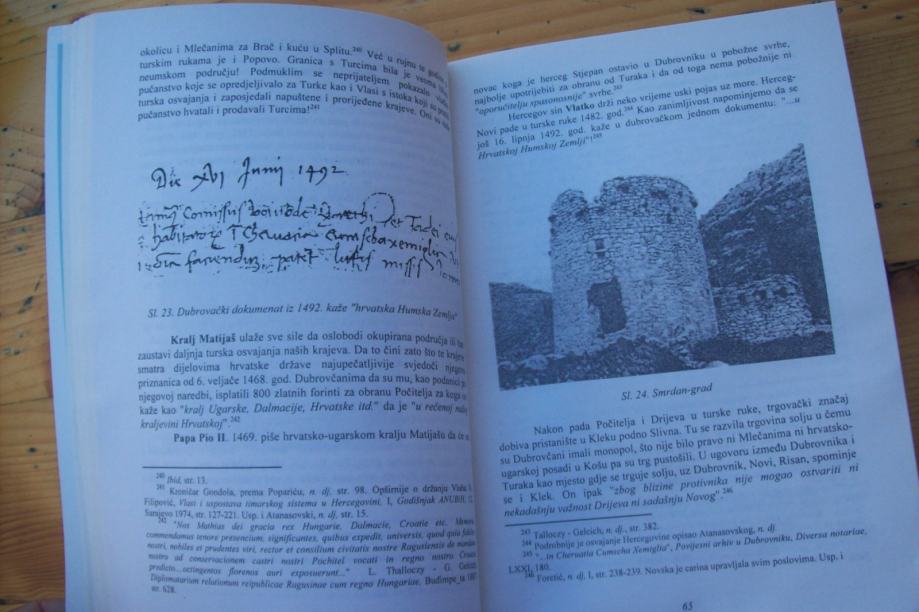 okolicu i Mlečanima za Brač i kuću u Splitu.²⁴⁰ Već u rujnu te godine u
turskim rukama je i Popovo. Granica s Turcima bila je veoma
neumskom području! Podmuklim se neprijateljem pokazalo
pučanstvo koje se opredjeljivalo za Turke kao i Vlasi s istoka koji su
turska osvajanja i zaposjedali napuštene i prorijeđene krajeve. Oni su
pučanstvo hvatali i prodavali Turcima!²⁴¹
Die XVI Junij 1492
Comissus
missis
Sl. 23. Dubrovački dokumenat iz 1492. kaže "hrvatska Humska Zemlja"
Kralj Matijaš ulaže sve sile da oslobodi okupirana područja ili
zaustavi daljnja turska osvajanja naših krajeva. Da to čini zato što te krajeve
smatra dijelovima hrvatske države najupečatljivije svjedoči njegova
priznanica od 6. veljače 1468. god. Dubrovčanima da su mu, kao podanici po
njegovoj naredbi, isplatili 800 zlatnih forinti za obranu Počitelja za koga
kaže kao "kralj Ugarske, Dalmacije, Hrvatske itd." da je "u rečenoj našoj
kraljevini Hrvatskoj".²⁴²
Papa Pio II. 1469. piše hrvatsko-ugarskom kralju Matijašu da će
²⁴⁰ Ibid, str. 13.
²⁴¹ Kroničar Gondola, prema Popariću, n. dj, str. 98. Opširnije o držanju Vlaha
Filipović, Vlasi i uspostava timarskog sistema u Hercegovini, I, Godišnjak ANUBIH,
Sarajevo 1974, str. 127-221. Usp. i Atanasovski, n. dj, str. 15.
²⁴² "Nos Mathias dei gracia rex Hungarie, Dalmacie, Croatie etc. Memorie
commendamus tenore presencium, significantes, quibus expedit, universis, quod quia fideles
nostri, nobiles et prudentes viri, rector et consilium civitatis nostre Ragusiensis de mandato
nostro ad conservacionem castri nostri Pochitel vocati in regno nostro Croatie
predicto...octingentos florenos auri exposuerunt..." L. Thalloczy - G. Gelcich,
Diplomatarium relationum reipublicae Ragusinae cum regno Hungariae, Budimpe_ta 1887
str. 628.
novac koga je herceg Stjepan ostavio u Dubrovniku u pobožne svrhe,
najbolje upotrijebiti za obranu od Turaka i da od toga nema pobožnije ni
"oporučitelju spasonosnije" svrhe.²⁴³
Hercegov sin Vlatko drži neko vrijeme uski pojas uz more. Herceg-
Novi pade u turske ruke 1482. god.²⁴⁴ Kao zanimljivost napominjemo da se
još 16. lipnja 1492. god. kaže u dubrovačkom jednom dokumentu: "...u
Hrvatskoj Humskoj Zemlji"!²⁴⁵
Sl. 24. Smrdan-grad
Nakon pada Počitelja i Drijeva u turske ruke, trgovački značaj
dobiva pristanište u Kleku podno Slivna. Tu se razvila trgovina solju u čemu
su Dubrovčani imali monopol, što nije bilo pravo ni Mlečanima ni hrvatsko-
ugarskoj posadi u Košu pa su trg pustošili. U ugovoru između Dubrovnika i
Turaka kao mjesto gdje se trguje solju, uz Dubrovnik, Novi, Risan, spominje
se i Klek. On ipak "zbog blizine protivnika nije mogao ostvariti ni
nekadašnju važnost Drijeva ni sadašnju Novog".²⁴⁶
²⁴³ Talloczy - Gelcich, n. dj., str. 382.
²⁴⁴ Podrobnije je osvajanje Hercegovine opisao Atanasovskog, n. dj.
²⁴⁵ "...in Cheruatia Cumscha Xemiglia", Povijesni arhiv u Dubrovniku, Diversa notariae,
LXXI, 180.
²⁴⁶ Foretić, n. dj, I, str. 238-239. Novska je carina upravljala svim poslovima. Usp. i
65